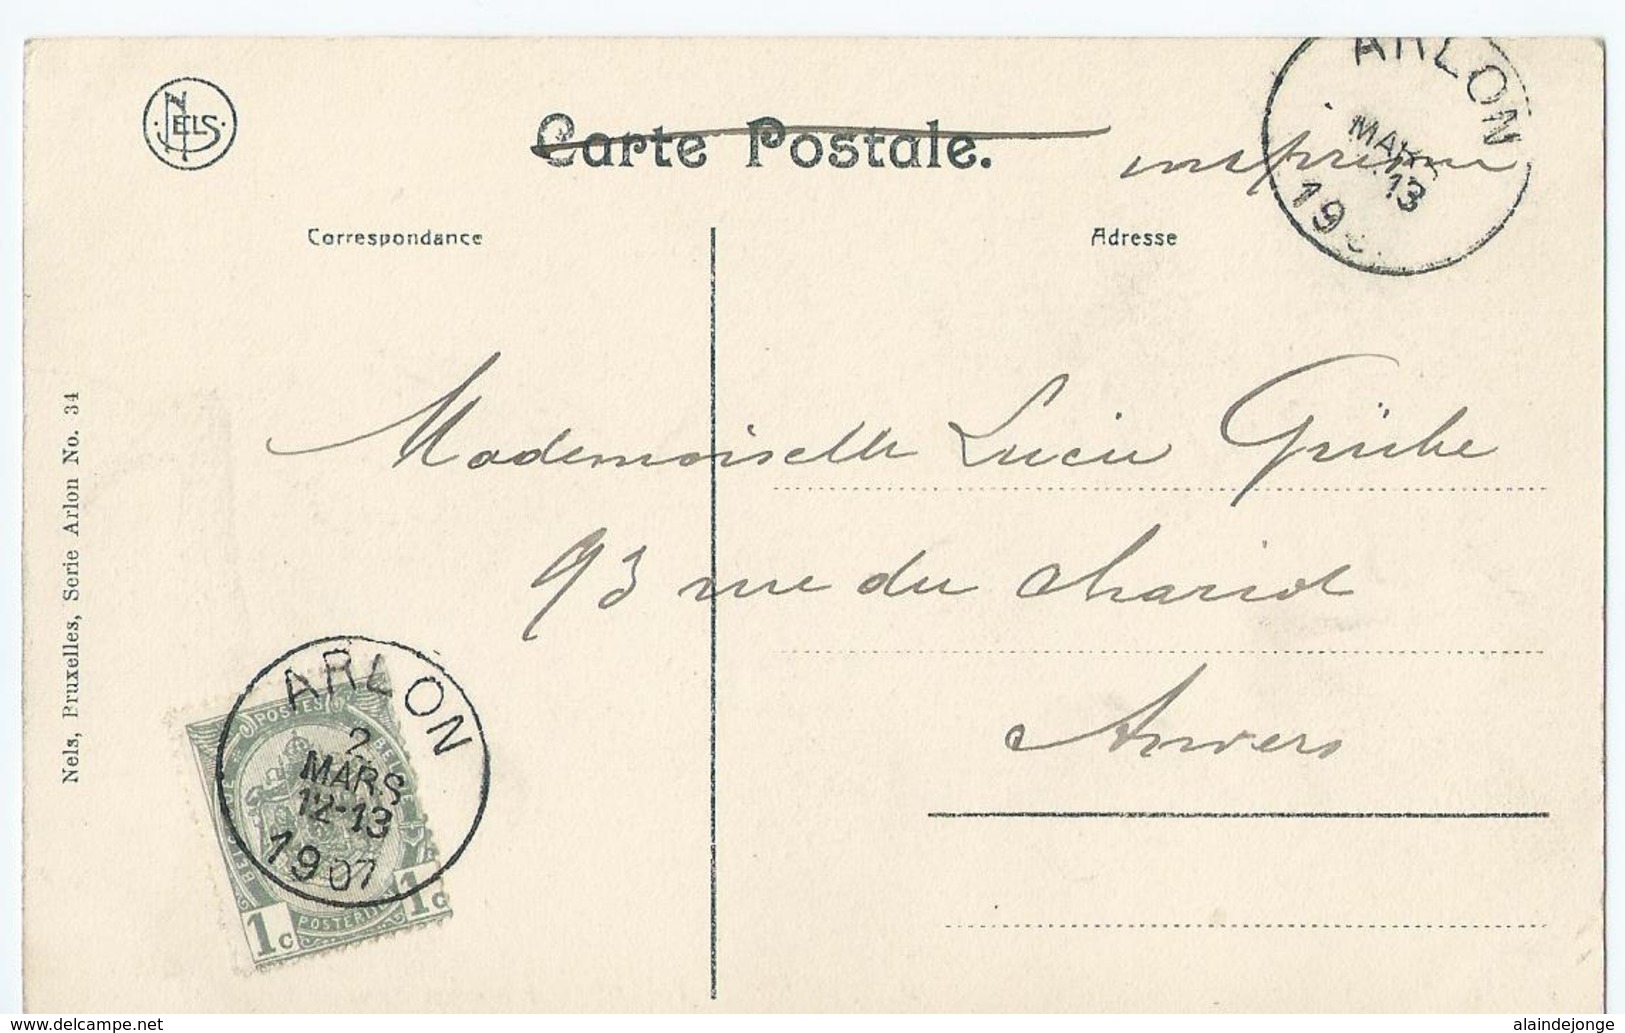 NELS
Carte Postale.
imprimé
ARLON
MARS
13
19
Correspondance
Adresse
Mademoiselle Lucie
93 rue du chariot
Anvers
Nels, Bruxelles, Serie Arlon No. 34
ARLON
2
MARS
12-13
1907
POSTES BELGIQUE
BELGIE POSTERIJEN
1c 1c
www.delcampe.net
alaindejonge